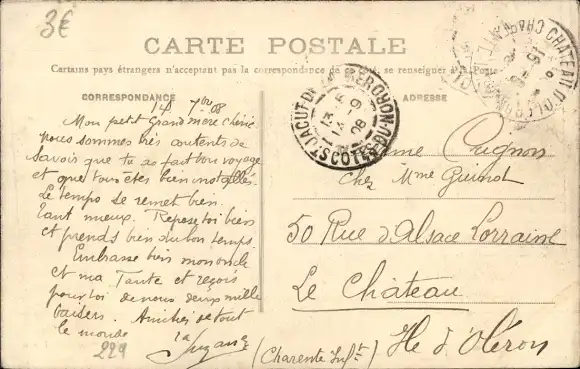 3€
CARTE POSTALE
Certains pays étrangers n'acceptent pas la correspondance de se renseigner à la Poste
CORRESPONDANCE
ADRESSE
14 7bre 08
Mon petit Grand mère chérie
nous sommes très contents de
savoir que tu as fait bon voyage
et que tous êtes bien installés.
Le temps se remet bien.
Tant mieux. Repose toi bien
et prends bien du bon temps.
Embrasse bien mon oncle
et ma Tante et reçois
pour toi de nous deux mille
baisers. Amitiés de tout
le monde
Suzanne
229
ST JACUT DE LA MER
COTES DU NORD
13 -9
08
CHATEAU D'OLERON
Mme Cugnon
chez Mme Guinot
50 Rue d'Alsace Lorraine
Le Château
Ile d'Oléron
(Charente Infre)